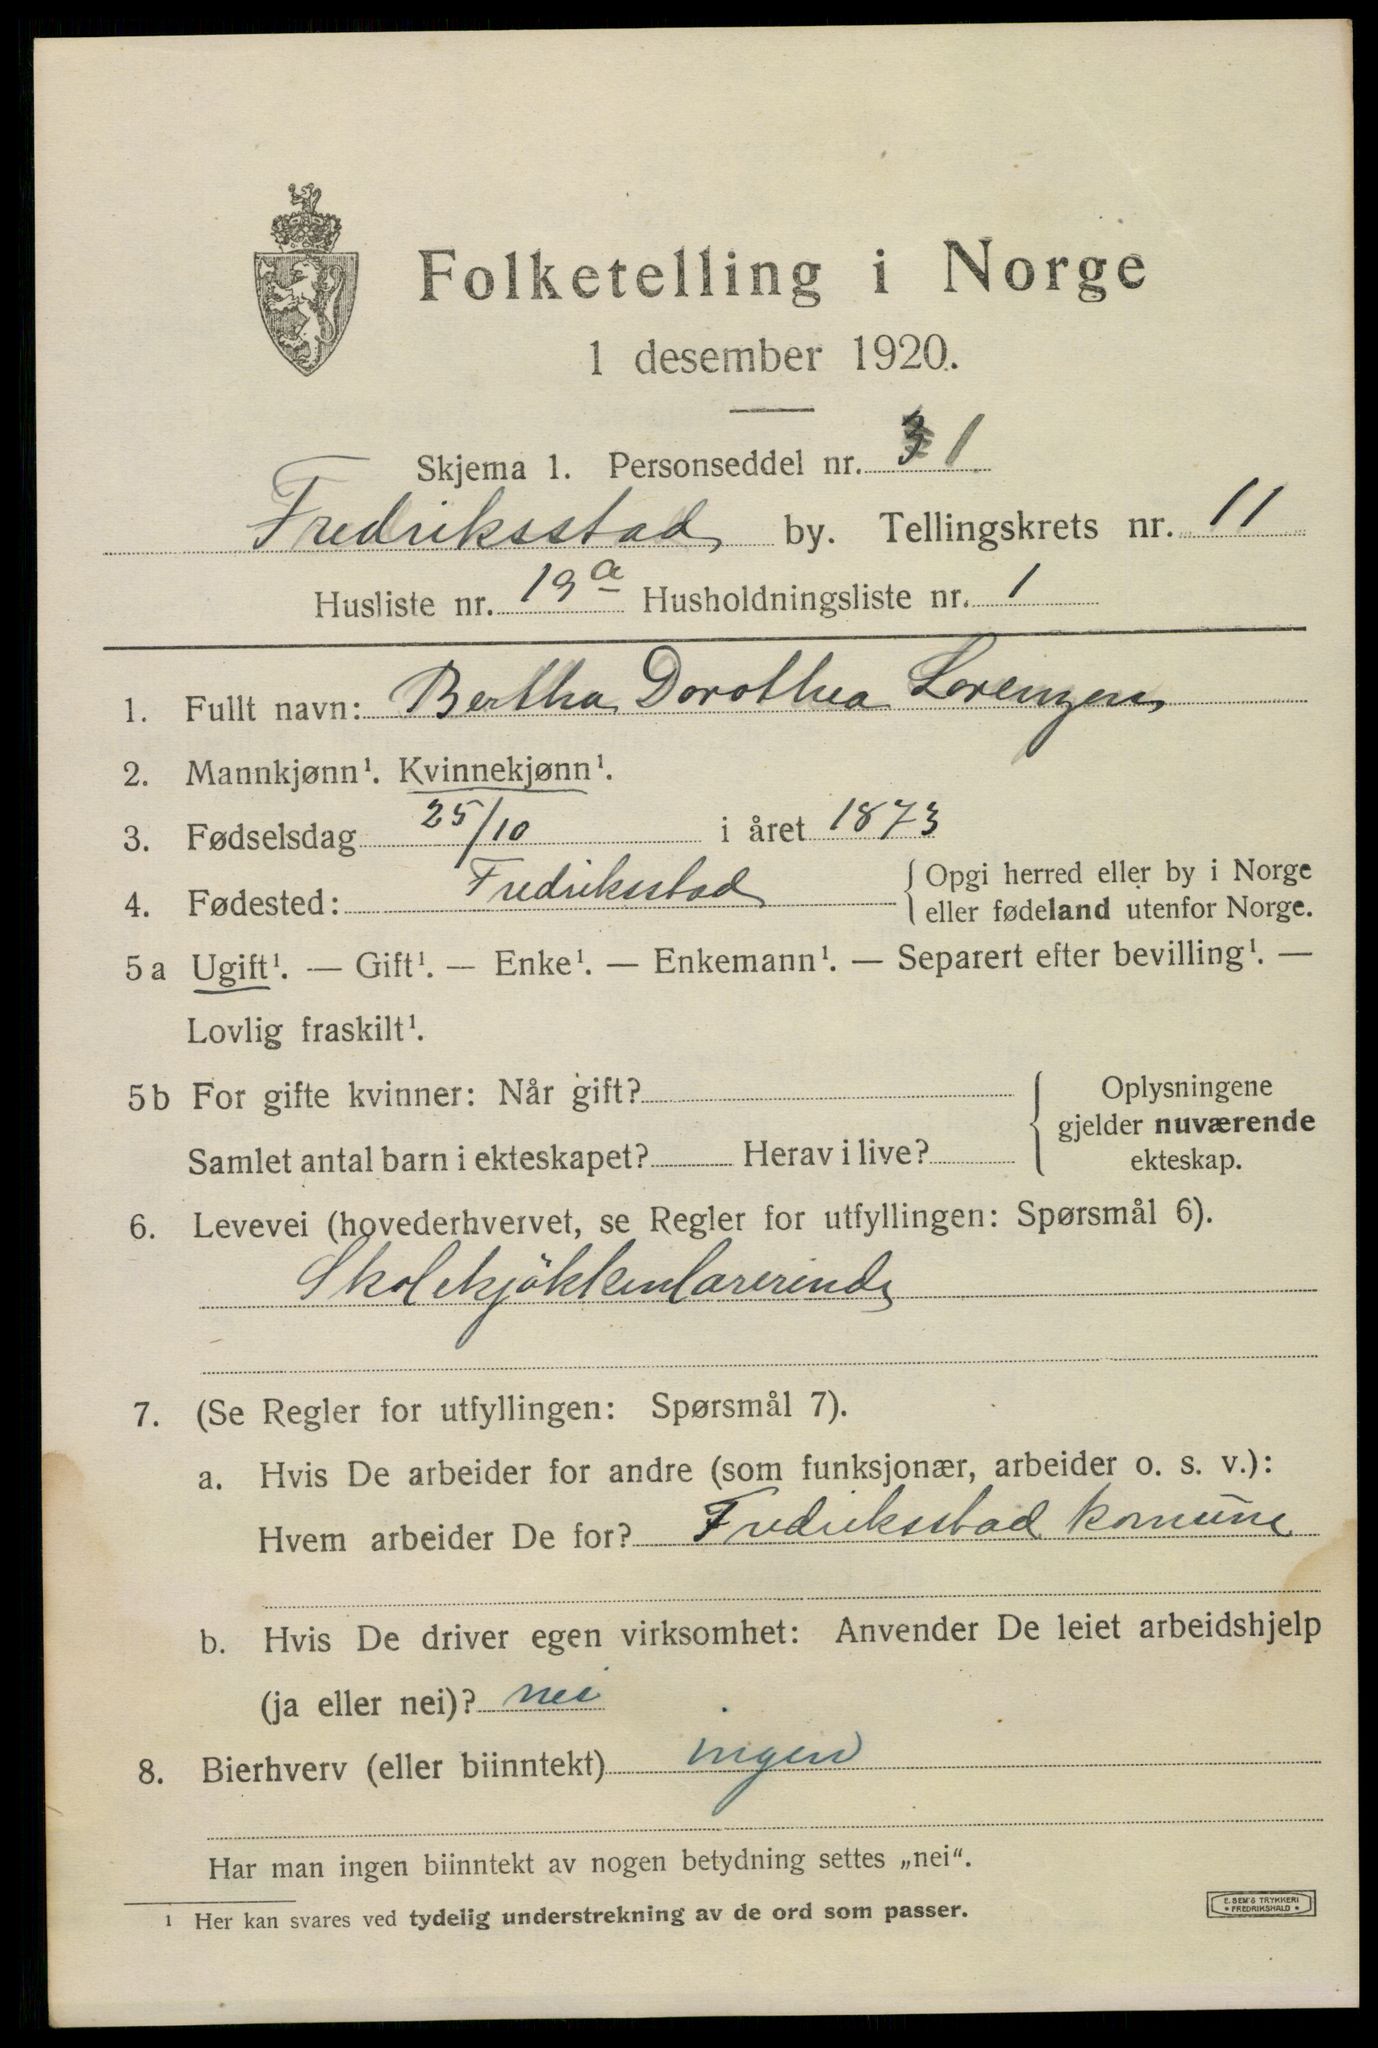 Folketelling i Norge
1 desember 1920.
Skjema 1. Personseddel nr. 1
Fredriksstad by. Tellingskrets nr. 11
Husliste nr. 19a Husholdningsliste nr. 1
1. Fullt navn: Bertha Dorothea Lorenzen
2. Mannkjønn¹. Kvinnekjønn¹.
3. Fødselsdag 25/10 i året 1873
4. Fødested: Fredriksstad { Opgi herred eller by i Norge
eller fødeland utenfor Norge.
5a Ugift¹. — Gift¹. — Enke¹. — Enkemann¹. — Separert efter bevilling¹. —
Lovlig fraskilt¹.
5b For gifte kvinner: Når gift? { Oplysningene
gjelder nuværende
Samlet antal barn i ekteskapet? Herav i live? ekteskap.
6. Levevei (hovederhvervet, se Regler for utfyllingen: Spørsmål 6).
Skolekjökkenlærerinde
7. (Se Regler for utfyllingen: Spørsmål 7).
a. Hvis De arbeider for andre (som funksjonær, arbeider o. s. v.):
Hvem arbeider De for? Fredriksstad komune
b. Hvis De driver egen virksomhet: Anvender De leiet arbeidshjelp
(ja eller nei)? nei
8. Bierhverv (eller biinntekt) ingen
Har man ingen biinntekt av nogen betydning settes „nei“.
¹ Her kan svares ved tydelig understrekning av de ord som passer.
E. SEM'S TRYKKERI
• FREDRIKSHALD •